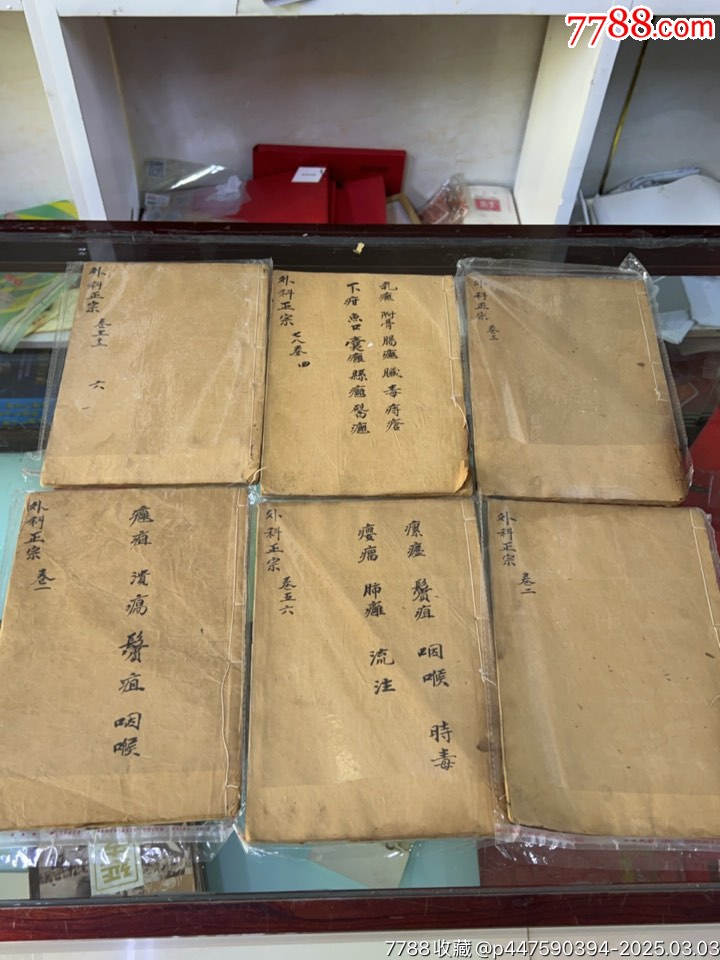 7788.com
外科正宗 卷 六
乳癰 附骨 腸癰 臟毒 痔瘡
下疳 魚口 囊癰 縣癰 臀癰
外科正宗 七八卷 四
外科正宗 卷三
癰疽 潰瘍 鬢疽 咽喉
外科正宗 卷一
瘰癧 鬢疽 咽喉 時毒
癭瘤 肺癰 流注
外科正宗 卷五六
外科正宗 卷二
7788收藏@p447590394-2025.03.03